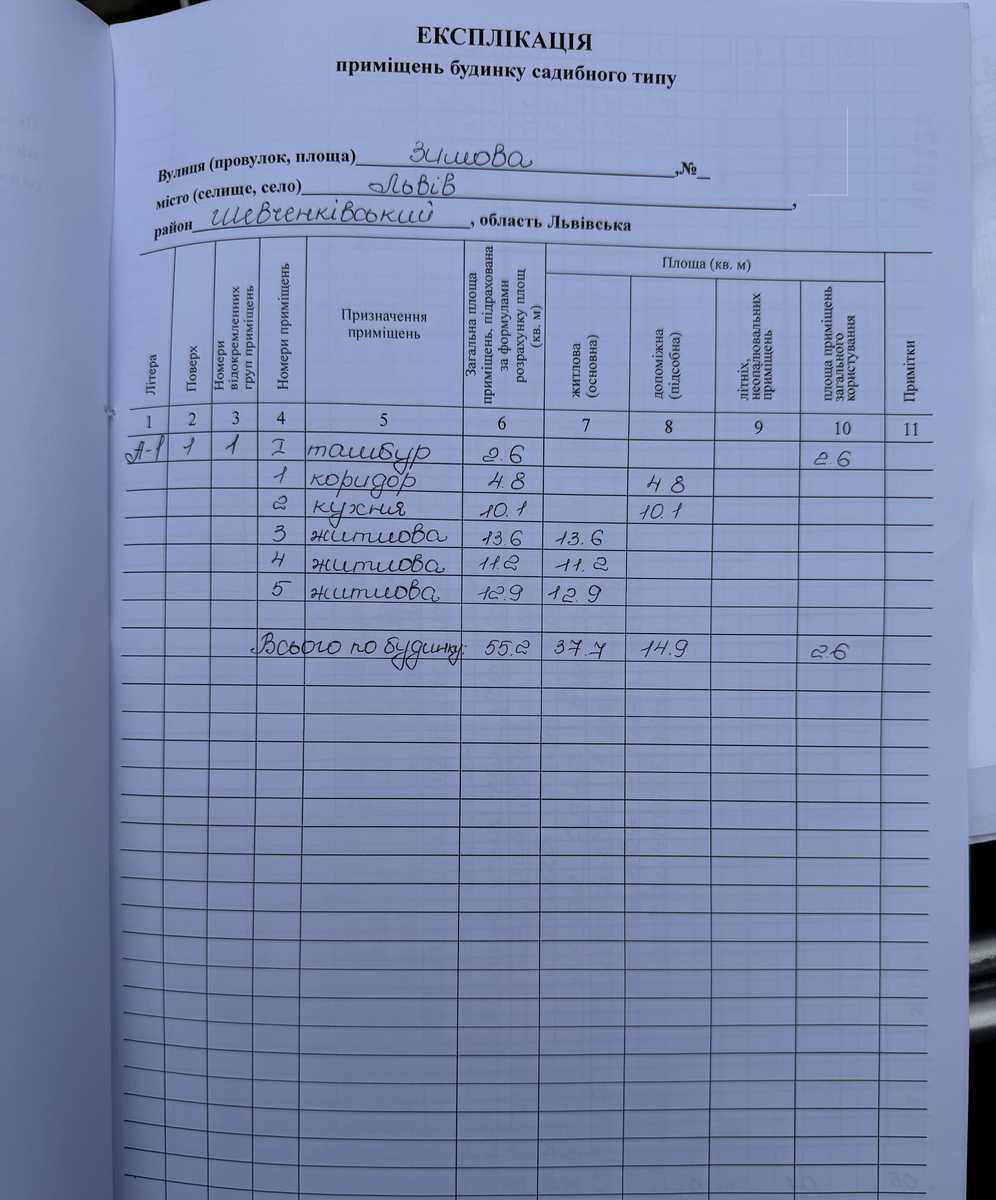 ЕКСПЛІКАЦІЯ
приміщень будинку садибного типу
Вулиця (провулок, площа) Зимова ,№
місто (селище, село) Львів ,
район Шевченківський , область Львівська
Літера Поверх Номери відокремленних груп приміщень Номери приміщень Призначення приміщень Загальна площа приміщень, підрахована за формулами розрахунку площ (кв. м) Площа (кв. м) житлова (основна) допоміжна (підсобна) літніх, неопалювальних приміщень площа приміщень загального користування Примітки
1 2 3 4 5 6 7 8 9 10 11
А-1 1 1 I тамбур 2.6 2.6
1 коридор 4.8 4.8
2 кухня 10.1 10.1
3 житлова 13.6 13.6
4 житлова 11.2 11.2
5 житлова 12.9 12.9
Всього по будинку: 55.2 37.7 14.9 2.6